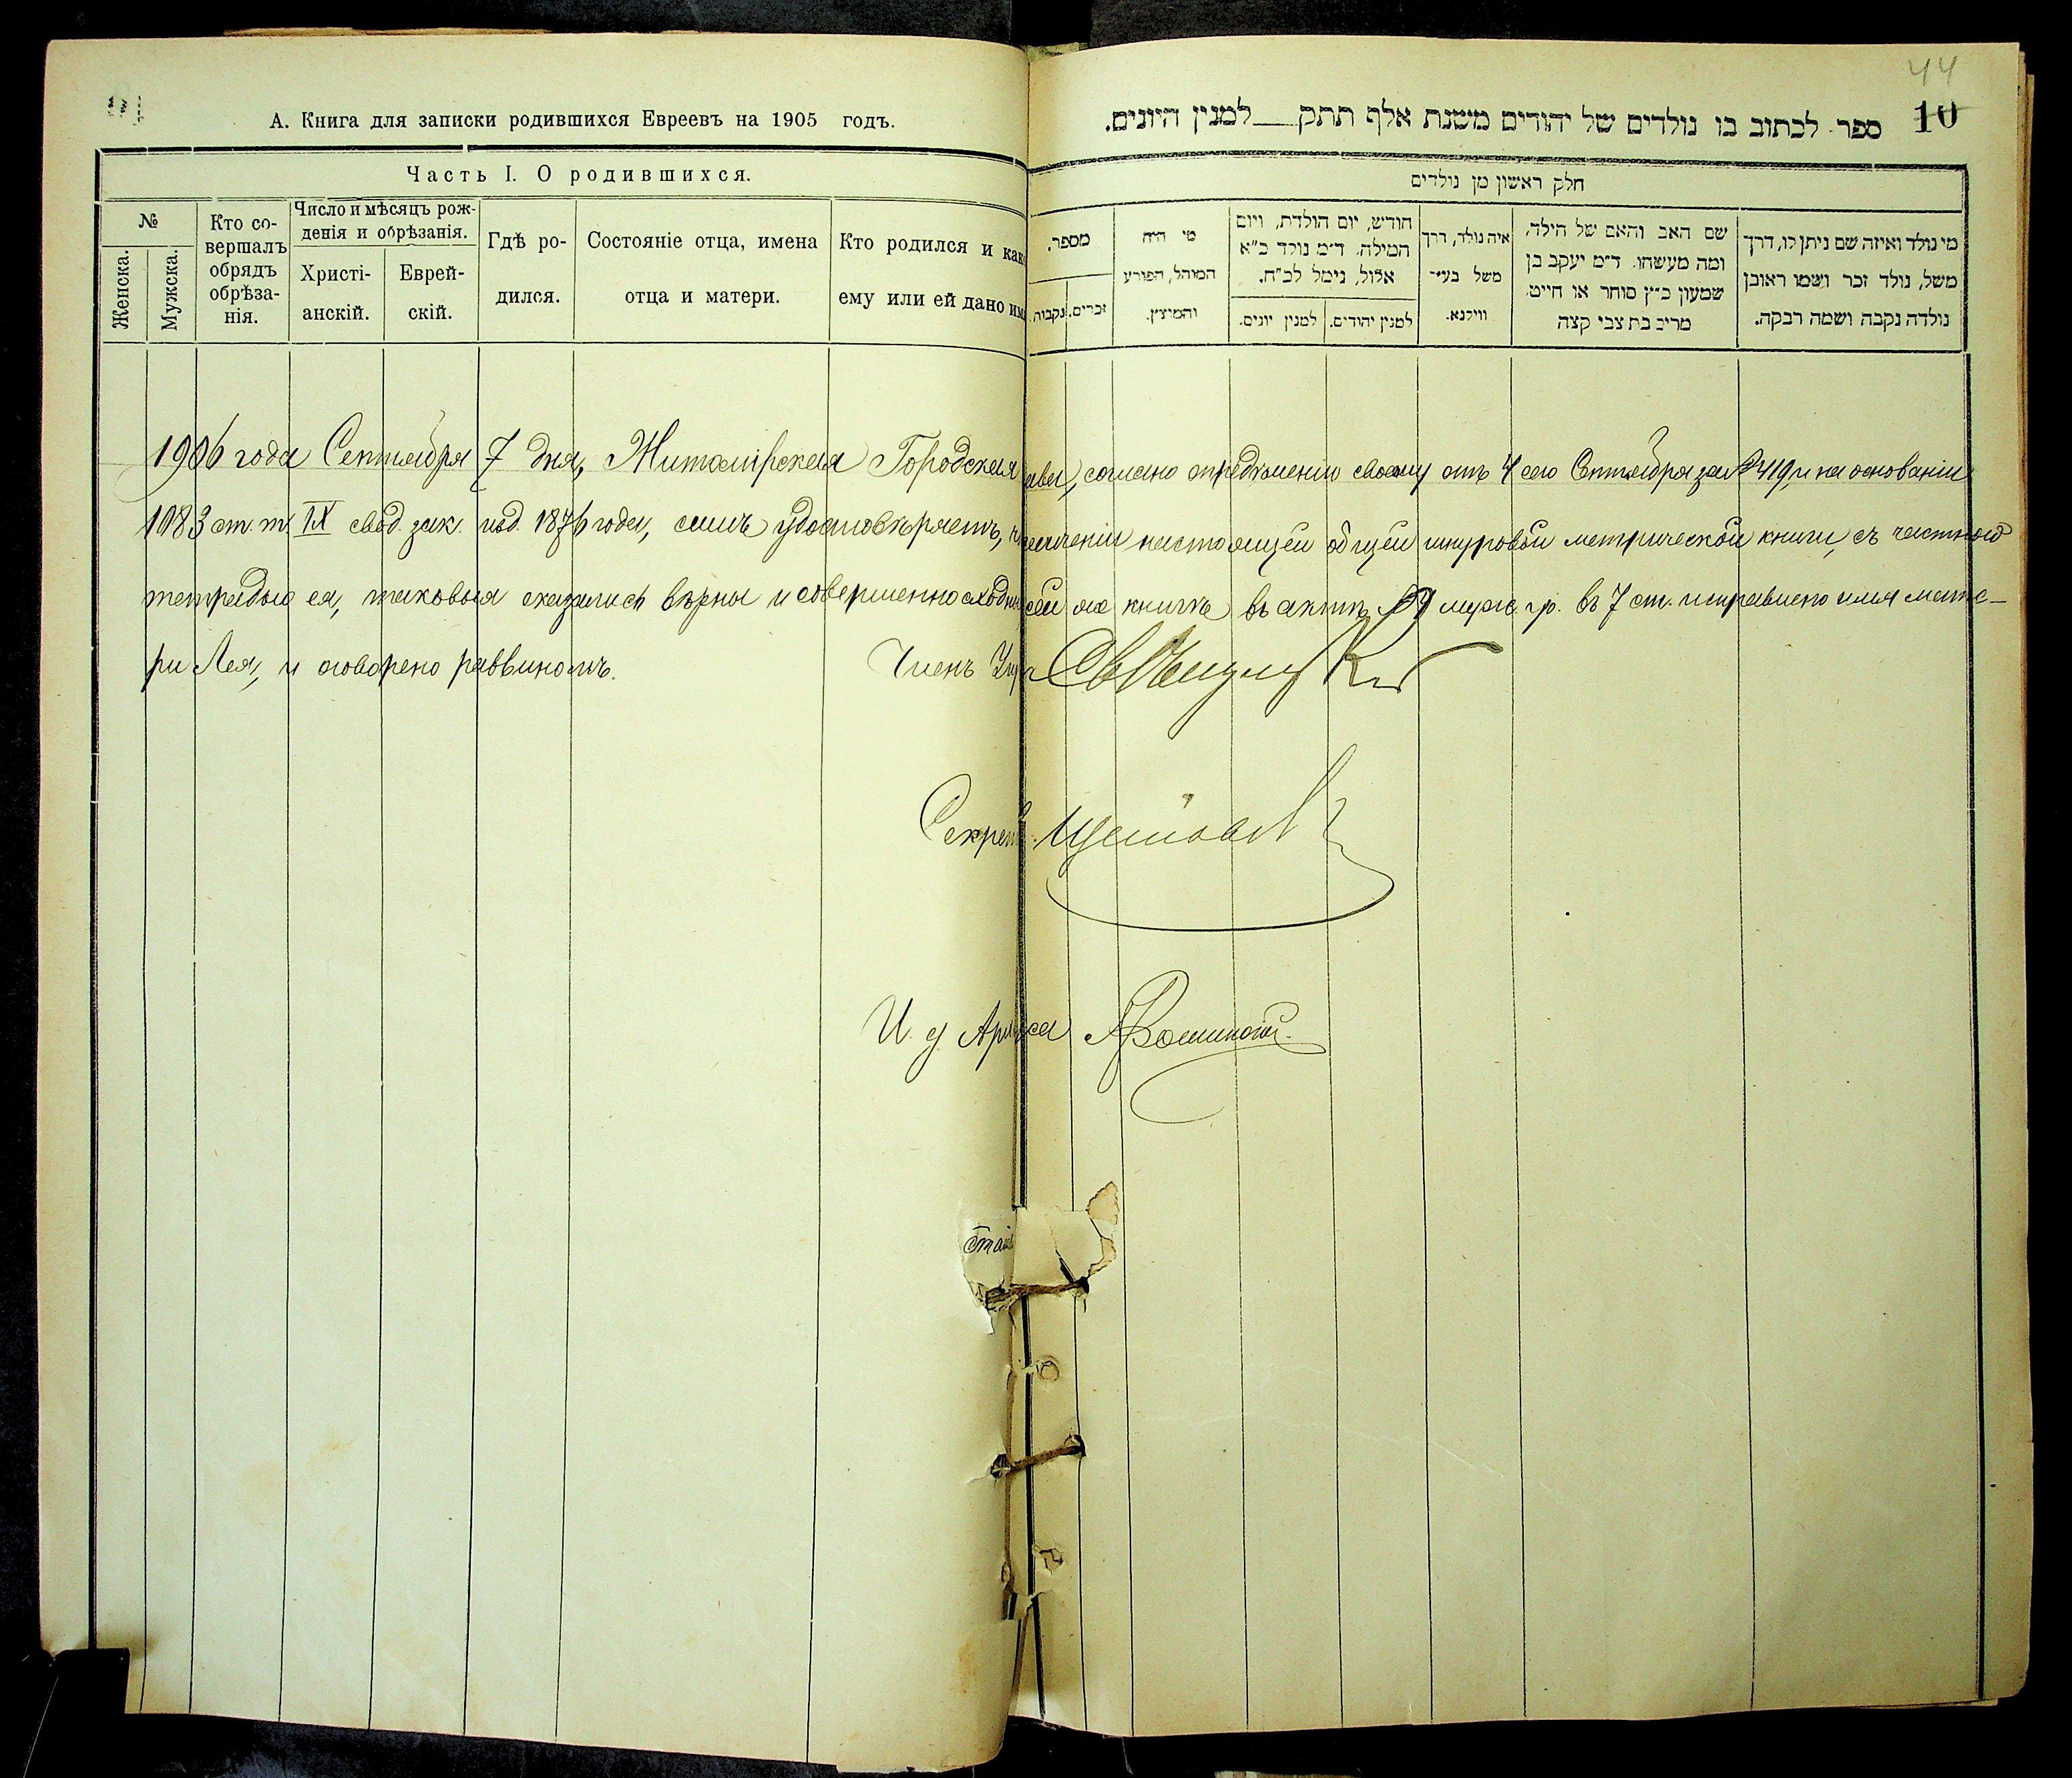 А. Книга для записки родившихся Евреевъ на 1905 годъ.
Часть I. О родившихся.
№
Женска.
Мужска.
Кто со-
вершалъ
обрядъ
обрѣза-
нія.
Число и мѣсяцъ рож-
денія и обрѣзанія.
Христі-
анскій.
Еврей-
скій.
Гдѣ ро-
дился.
Состояніе отца, имена
отца и матери.
Кто родился и как
ему или ей дано им
44
10
ספר לכתוב בו נולדים של יהודים משנת אלף תתק למנין היונים.
חלק ראשון מן נולדים
מספר,
זכרים.
נקבות.
מי היה
המוהל, הפורע
והמוצץ.
חודש, יום הולדת, ויום
המילה. ד״מ נולד ב״א
אלול, נימל לב״ח.
למנין יהודים.
למנין יונים.
איה נולד, דרך
משל בעי־
ווילנא.
שם האב והאם של הילד,
ומה מעשהו. ד״מ יעקב בן
שמעון כ״ץ סוחר או חייט,
מרים בת צבי קצה
מי נולד ואיזה שם ניתן לו, דרך
משל, נולד זכר ושמו ראובן
נולדה נקבה ושמה רבקה.
1906 года Сентября 7 дня, Житомірская Городская ава, согласно опредѣленію своему отъ 4 сего Сентября за № 419, и на основаніи
1083 ст. т. IX свод. зак. изд. 1876 года, симъ удостовѣряетъ, ч личеніи настоящей общей шнуровой метрической книги, съ частною
тетрадью ея, таковыя оказались вѣрны и совершенно сходны сей же книгѣ въ актѣ № 9 муж. гр. въ 7 ст. исправлено имя мате-
ри Лея, и оговорено раввиномъ.
Членъ Уп
Секрет.
И. д. Ар